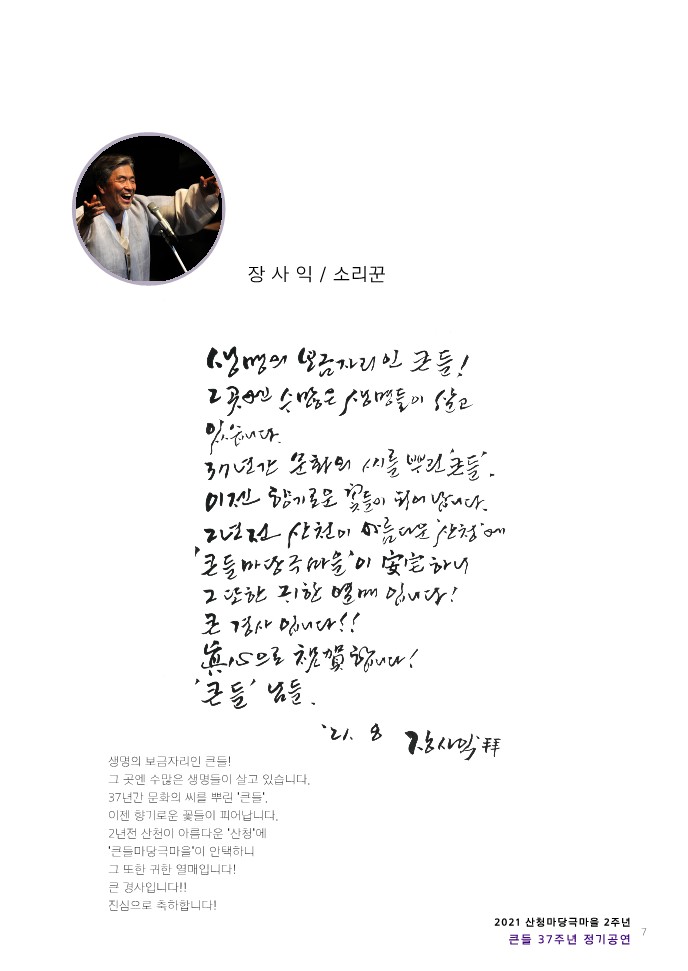 장 사 익 / 소리꾼
생명의 보금자리인 큰들!
그 곳엔 수많은 생명들이 살고
있습니다.
37년간 문화의 씨를 뿌린 '큰들'.
이젠 향기로운 꽃들이 피어납니다.
2년전 산천이 아름다운 '산청'에
'큰들마당극마을'이 安宅하니
그 또한 귀한 열매입니다!
큰 경사입니다!!
眞心으로 祝賀합니다!
'큰들' 님들.
'21. 8 장사익 拜
생명의 보금자리인 큰들!
그 곳엔 수많은 생명들이 살고 있습니다.
37년간 문화의 씨를 뿌린 '큰들'.
이젠 향기로운 꽃들이 피어납니다.
2년전 산천이 아름다운 '산청'에
'큰들마당극마을'이 안택하니
그 또한 귀한 열매입니다!
큰 경사입니다!!
진심으로 축하합니다!
2021 산청마당극마을 2주년
큰들 37주년 정기공연
7